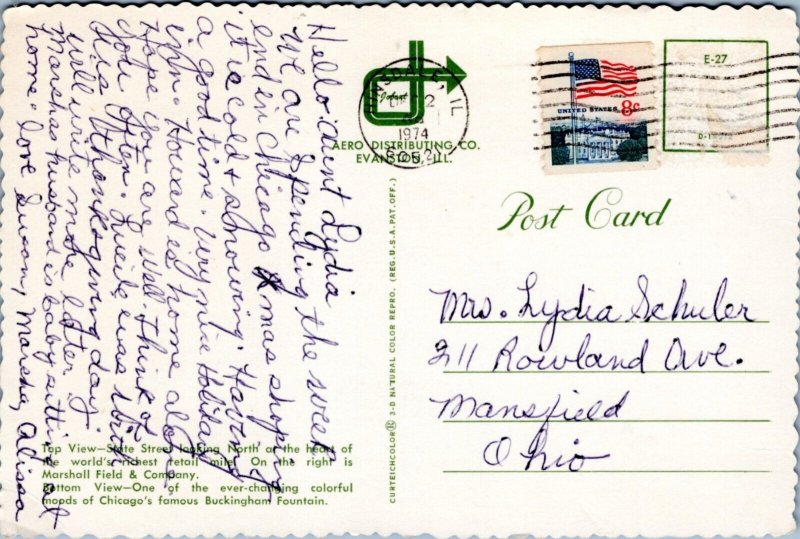 Hello Aunt Lydia
We are spending the week
end in Chicago Xmas shopping
it is cold & snowing. Having
a good time. Very nice Holiday
inn. Howard is home alone
Hope you are well. Think of
you often. Lucile was
this Thanksgiving day.
will write more later
Marshas husband is baby sitting at
home. Love Susan, Marsha, Alissa
Top View—State Street looking North at the heart of
the world's richest retail mile. On the right is
Marshall Field & Company.
Bottom View—One of the ever-changing colorful
moods of Chicago's famous Buckingham Fountain.
AERO DISTRIBUTING CO.
EVANSTON, ILL.
IL
2
1974
UNITED STATES 8c
E-27
CURTEICHCOLOR® 3-D NATURAL COLOR REPRO. (REG. U.S.A. PAT. OFF.)
Post Card
Mrs. Lydia Schuler
211 Rowland Ave.
Mansfield
Ohio